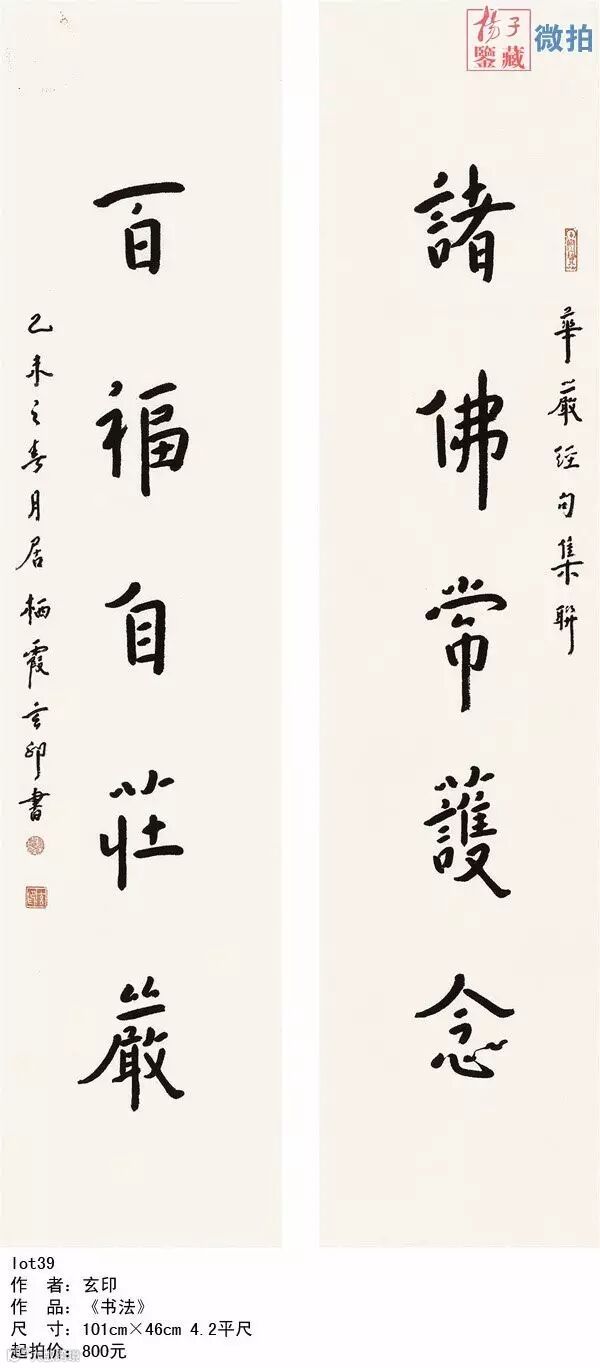 揚子
鑒藏
微拍
華嚴经句集聯
諸佛常護念
百福自莊嚴
乙未之春月居栖霞玄印書
lot39
作 者：玄印
作 品：《书法》
尺 寸：101cm×46cm 4.2平尺
起拍价：800元